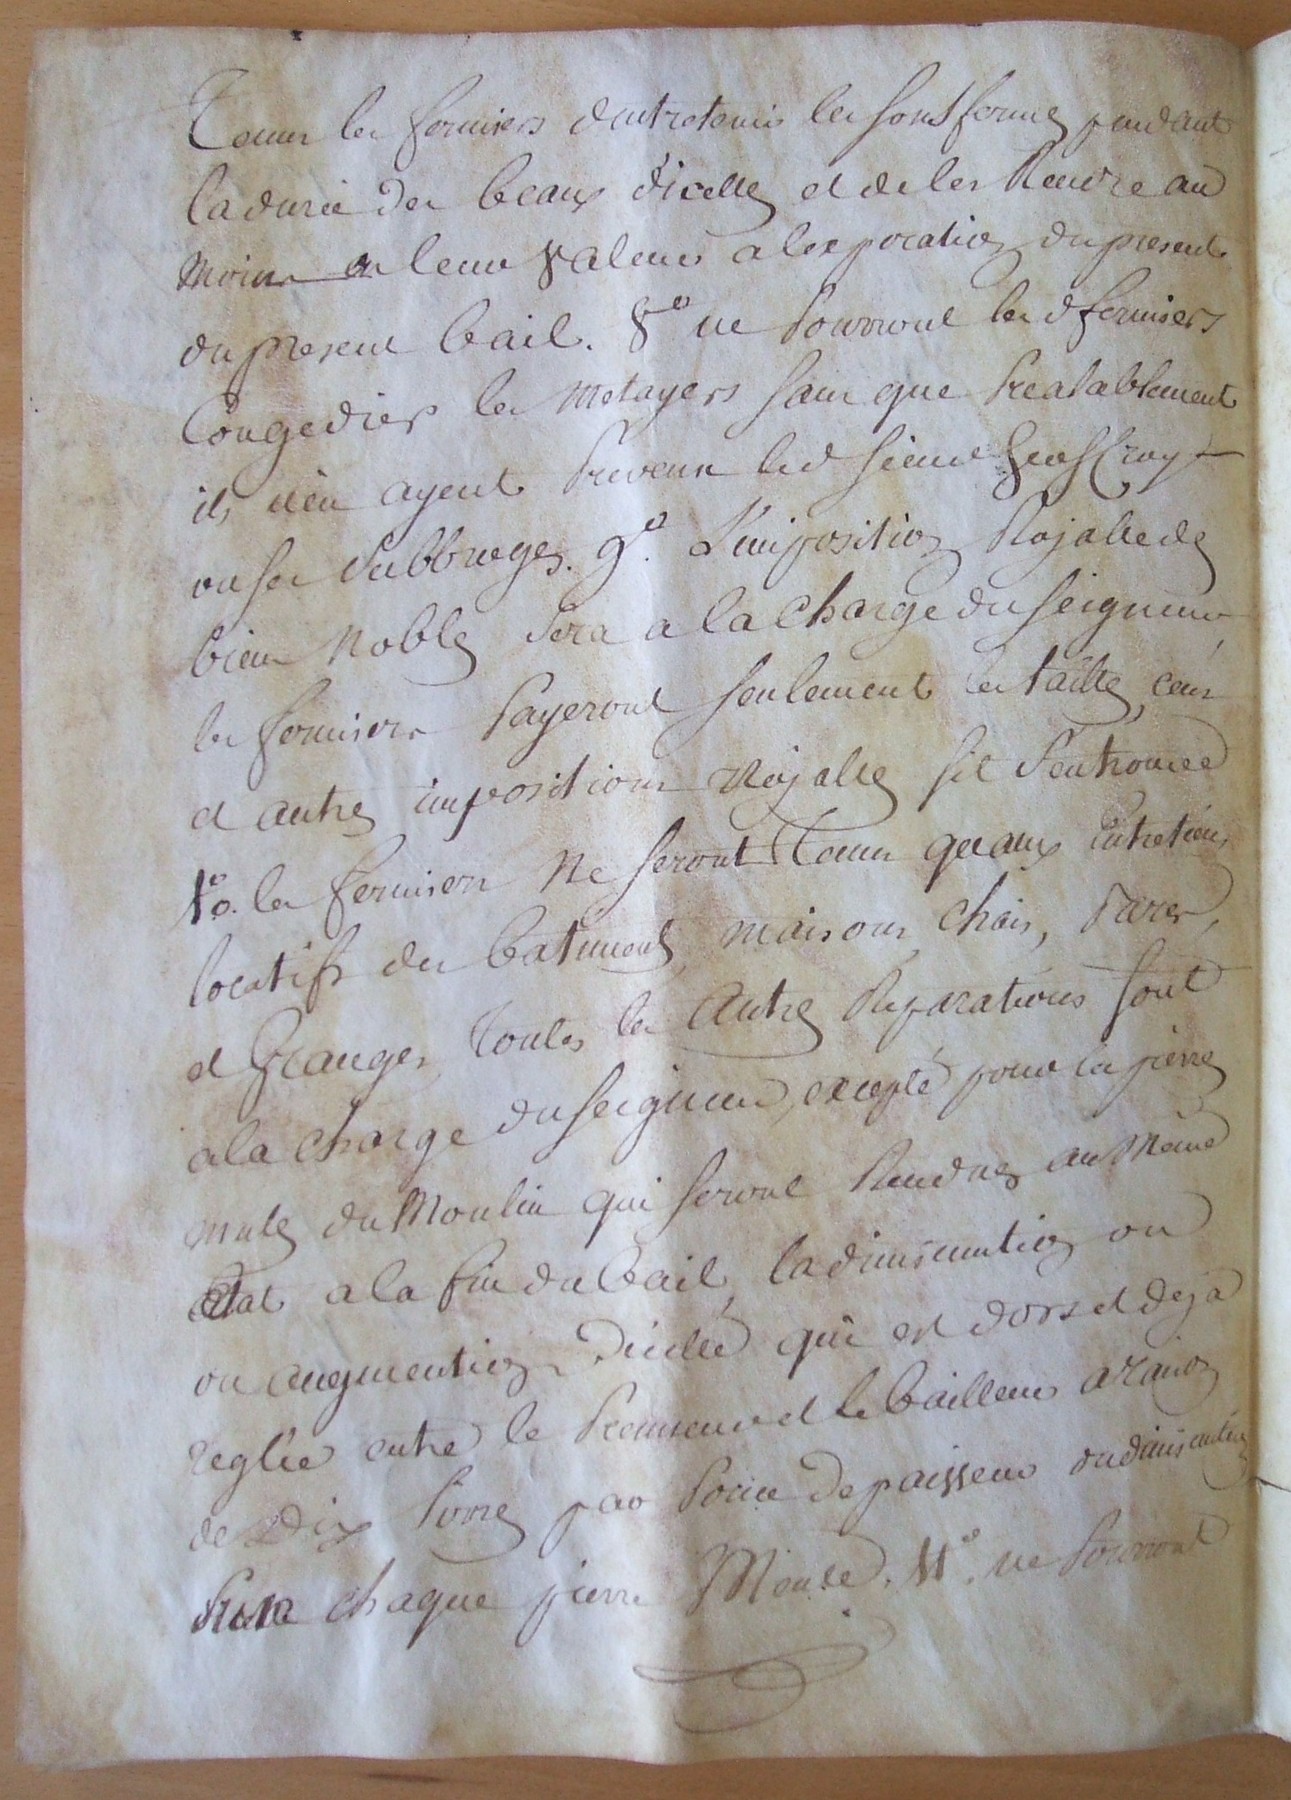 Tenus les fermiers d'entretenir les sousferme pendant
la durée des beaux d'icelle et de les Rendre au
moins en leur valeur a lexpiration du present
du present bail. 8° ne Pourront les d fermiers
Congedier les metayers sans que Prealablement
ils n'en ayent Prevenu led sieur Geoffroy
ou ses Subbroges. 9° L'imposition Royalle des
biens Nobles sera a la charge du seigneur
les fermiers Payeront seulement les taille, cens
et autres impositions Royalles s'il s'en trouvée
10. les fermiers Ne seront Tenus qu'aux Entretiens
locatifs des batiments maisons, chais, Parcs,
et Granges, Toutes les Autres Reparations sont
a la charge du seigneur, excepté pour les pierres
mules du Moulin qui seront Rendues au Même
Etat a la fin du bail, la diminution ou
ou augmention d'icelle qui est dors et deja
reglée entre le Preneur et le bailleur a raison
de Dix Livres par Pouce depaisseur ou diminution
Pour chaque pierre Meule. 11°. ne Pourront